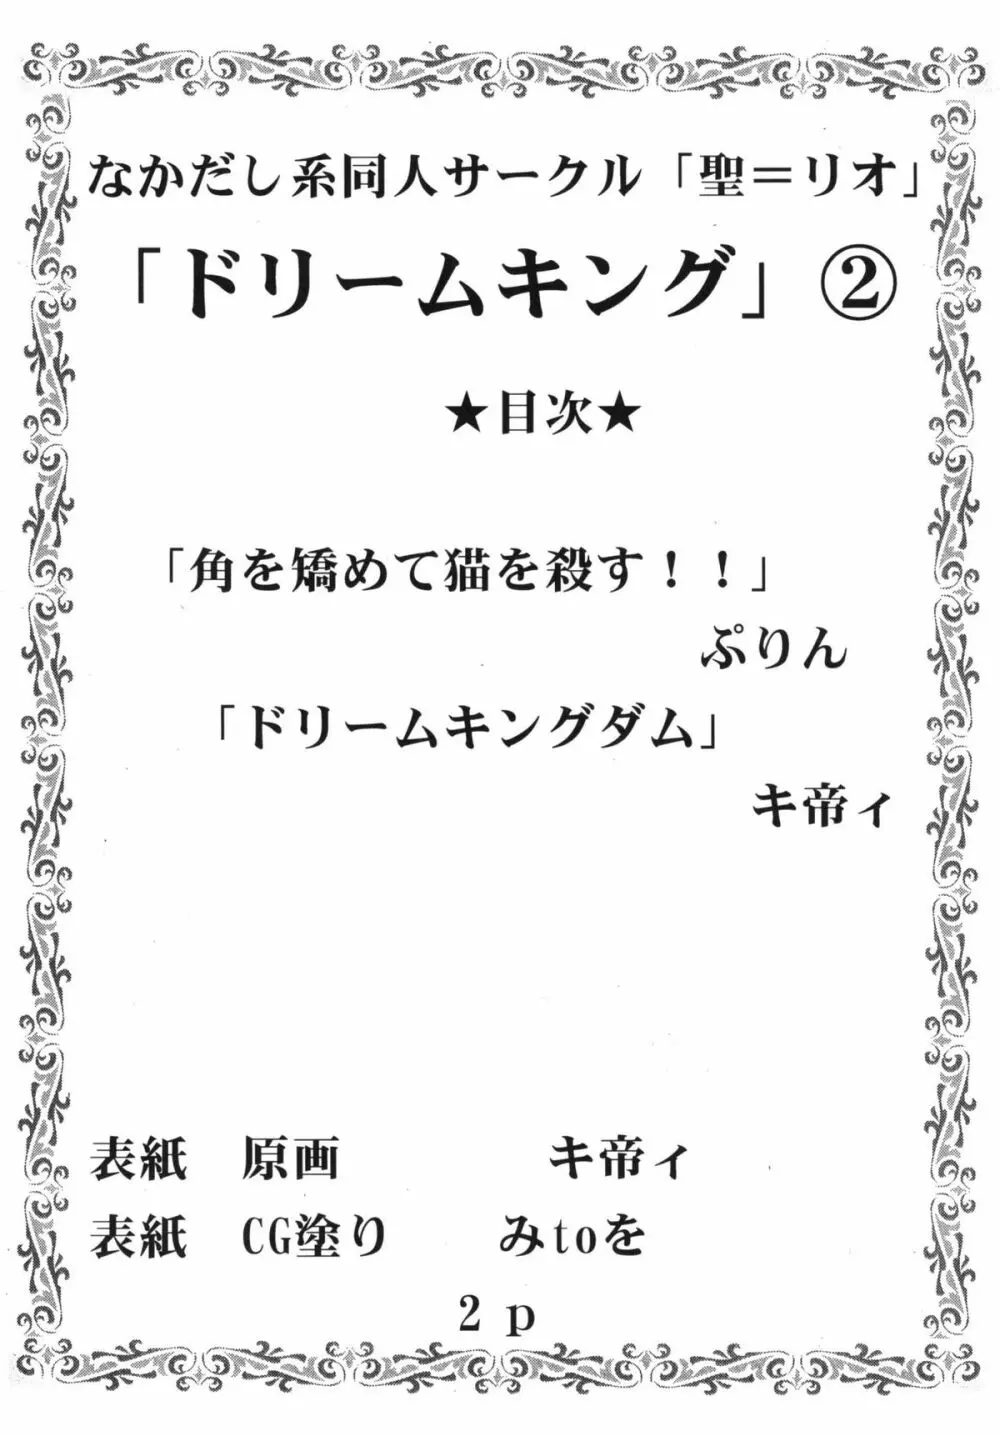 なかだし系同人サークル「聖＝リオ」
「ドリームキング」②
★目次★
「角を矯めて猫を殺す！！」
ぷりん
「ドリームキングダム」
キ帝ィ
表紙　原画　キ帝ィ
表紙　CG塗り　みtoを
2 p